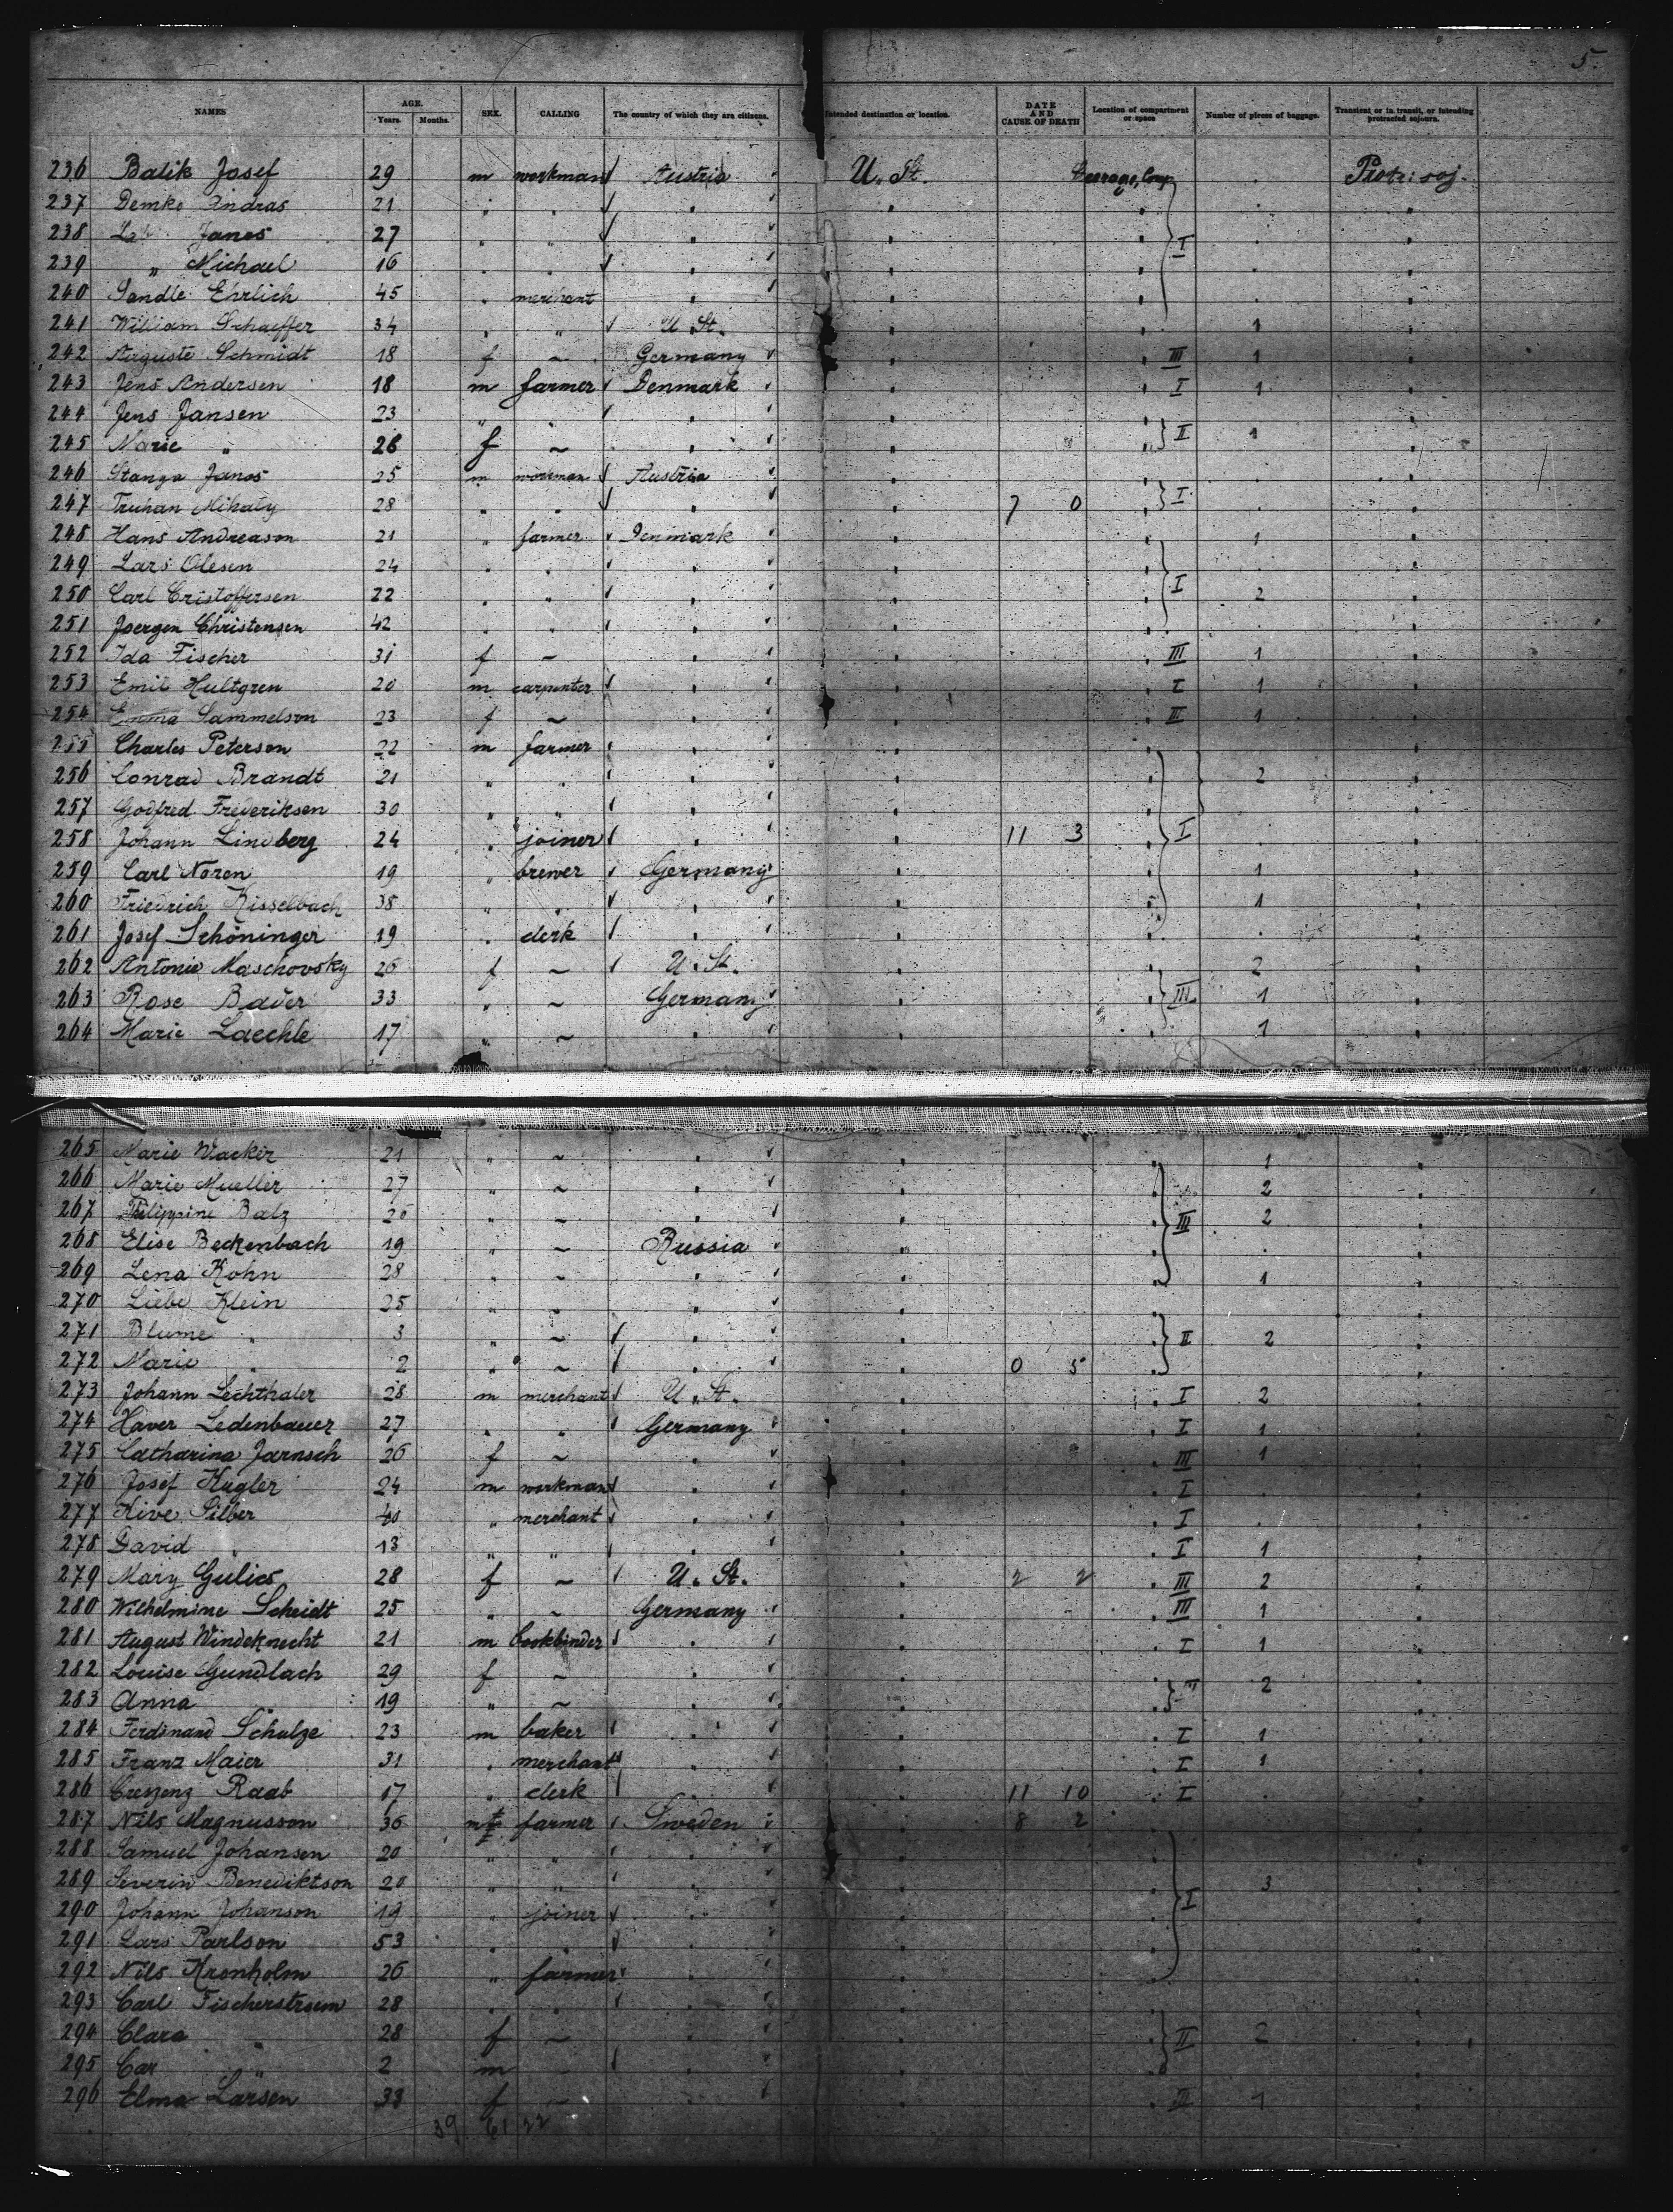 5.
NAMES AGE. Years. Months. SEX. CALLING The country of which they are citizens. Intended destination or location. DATE AND CAUSE OF DEATH Location of compartment or space Number of pieces of baggage. Transient or in transit, or intending protracted sojourn.
236 Balik Josef 29 m workman Austria U. St. Protr: soj.
237 Demko Andras 21 " "
238 Janos 27 " " I
239 " Michael 16 " "
240 Sandle Ehrlich 45 " merchant
241 William Schaeffer 34 " " U. St. 1
242 Auguste Schmidt 18 f ~ Germany III 1
243 Jens Andersen 18 m farmer Denmark I 1
244 Jens Jansen 23 " "
245 Marie " 26 f ~ " II 1
246 Stanga Janos 25 m workman Austria
247 Truhan Mihaly 28 " " " 7 0 I
248 Hans Andreason 21 " farmer Denmark 1
249 Lars Olesen 24 " " "
250 Carl Cristoffersen 22 " " " I 2
251 Joergen Christensen 42 " " "
252 Ida Fischer 31 f ~ " III 1
253 Emil Hultgren 20 m carpenter " I 1
254 Emma Sammelson 23 f ~ " III 1
255 Charles Peterson 22 m farmer "
256 Conrad Brandt 21 " " " 2
257 Godfred Frederiksen 30 " " "
258 Johann Lindberg 24 " joiner " 11 3 I
259 Carl Noren 19 " brewer Germany 1
260 Friedrich Kisselbach 38 " " " 1
261 Josef Schöninger 19 " clerk "
262 Antonie Maschovsky 26 f ~ U. St. 2
263 Rose Bauer 33 " ~ Germany III 1
264 Marie Laechle 17 " ~ " 1
265 Marie Wacker 21 " ~ " 1
266 Marie Mueller 27 " ~ " 2
267 Philippine Balz 20 " ~ " III 2
268 Elise Beckenbach 19 " ~ Russia
269 Lena Kohn 28 " ~ " 1
270 Liebe Klein 25 " ~ "
271 Blume " 3 " ~ " II 2
272 Marie " 2 " ~ " 0 5
273 Johann Lechthaler 28 m merchant U. St. I 2
274 Xaver Ledenbauer 27 " " Germany I 1
275 Catharina Jarnsch 26 f ~ " III 1
276 Josef Kugler 24 m workman " I
277 Hive Silber 40 " merchant " I
278 David " 13 " " " I 1
279 Mary Gulics 28 f ~ U. St. 2 2 III 2
280 Wilhelmine Scheidt 25 " ~ Germany III 1
281 August Windeknecht 21 m bookbinder " I 1
282 Louise Gundlach 29 f ~ "
283 Anna " 19 " ~ " III 2
284 Ferdinand Schulze 23 m baker " I 1
285 Franz Maier 31 " merchant " I 1
286 Creszenz Raab 17 " clerk " 11 10 I
287 Nils Magnusson 36 m farmer Sweden 8 2
288 Samuel Johansen 20 " " "
289 Severin Benediktson 20 " " " 3
290 Johann Johanson 19 " joiner " I
291 Lars Parlson 53 " " "
292 Nils Kronholm 26 " farmer "
293 Carl Fischerstroem 28 " " "
294 Clara " 28 f ~ " II 2
295 Car " 2 m "
296 Elma Larsen 33 f ~ " III 1
39 61 22